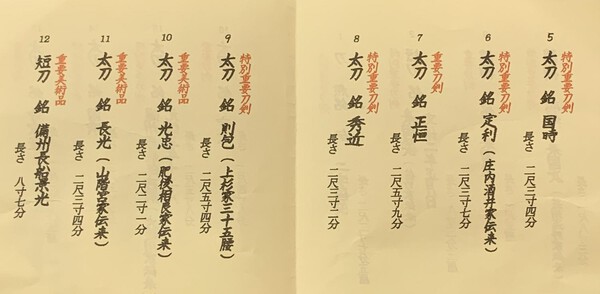 5
特別重要刀剣
太刀 銘 国時
長さ 二尺三寸四分
6
特別重要刀剣
太刀 銘 定利(庄内酒井家伝来)
長さ 二尺三寸七分
7
重要刀剣
太刀 銘 正恒
長さ 二尺五寸九分
8
特別重要刀剣
太刀 銘 秀近
長さ 二尺三寸二分
9
特別重要刀剣
太刀 銘 則包(上杉家三十五腰)
長さ 二尺五寸四分
10
重要美術品
太刀 銘 光忠(肥後相良家伝来)
長さ 二尺二寸一分
11
重要美術品
太刀 銘 長光(山階宮家伝来)
長さ 二尺三寸四分
12
重要美術品
短刀 銘 備州長船景光
長さ 八寸七分